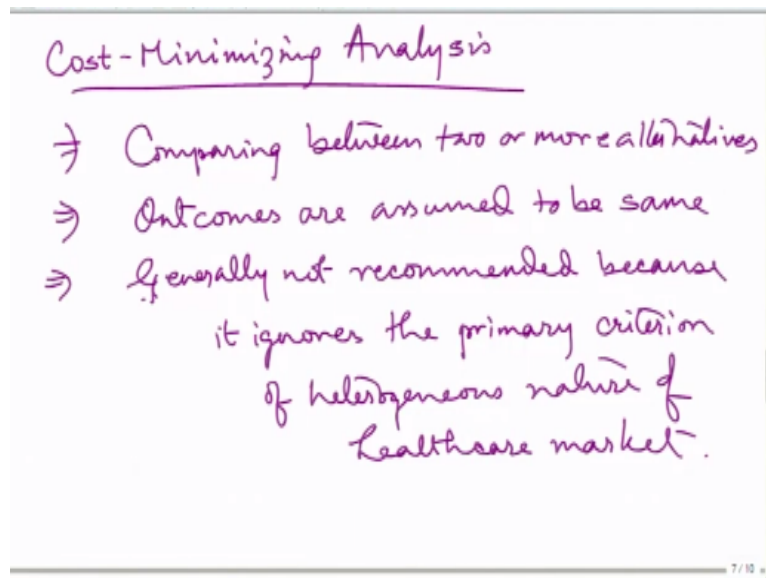 Cost-Minimizing Analysis
⇒ Comparing between two or more alternatives
⇒ Outcomes are assumed to be same
⇒ Generally not recommended because
it ignores the primary criterion
of heterogeneous nature of
healthcare market.
7/10